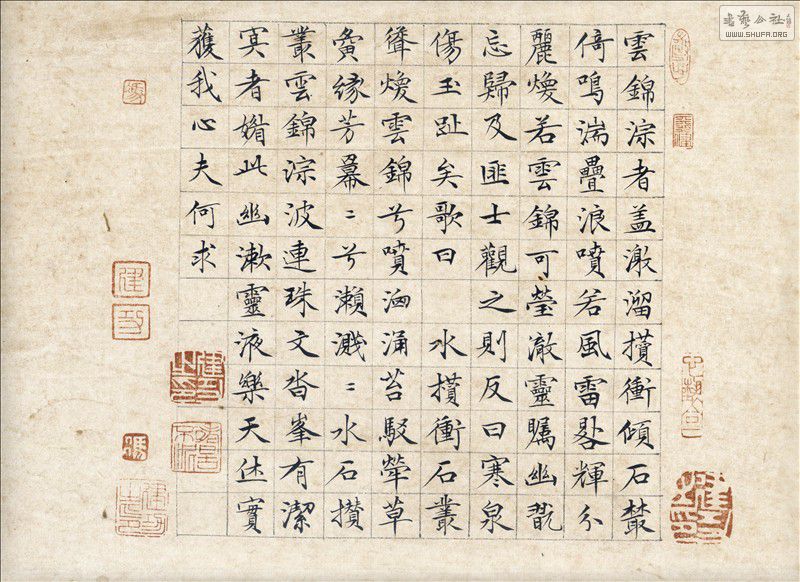 書藝公社
WWW.SHUFA.ORG
雲錦淙者盖激溜攢衝傾石叢
倚鳴湍疊浪噴若風雷輝分
麗煥若雲錦可瑩澈靈矚幽翫
忘歸及匪士觀之則反曰寒泉
傷玉趾矣歌曰 水攢衝石叢
聳煥雲錦兮噴洶涌苔駁犖草
夤緣芳冪〻兮瀨濺〻水石攢
叢雲錦淙波連珠文沓峯有潔
冥者媚此幽漱靈液樂天休實
獲我心夫何求